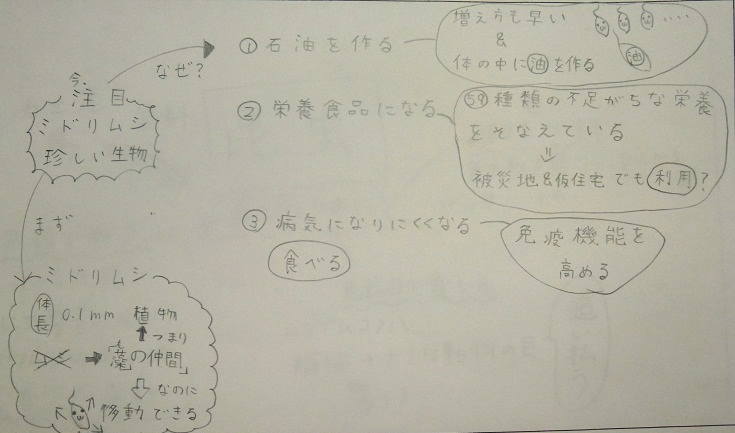 今、
注目
ミドリムシ
珍しい生物
なぜ?
まず
ミドリムシ
体長 0.1mm 植物
つまり
ムシ
「藻の仲間」
なのに
移動できる
① 石油を作る
増え方も早い
&
体の中に油を作る
油
② 栄養食品になる
59種類の不足がちな栄養
をそなえている
被災地&仮住宅でも利用?
③ 病気になりにくくなる
食べる
免疫機能を
高める